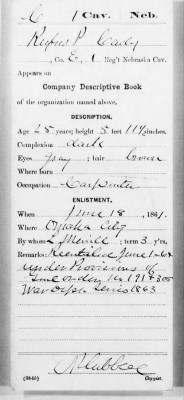 C / Cav. Neb.
Rufus P. Cady
, Co. E, 1 Reg't Nebraska Cav.
Appears on
Company Descriptive Book
of the organization named above.
DESCRIPTION.
Age 28 years; height 5 feet 11½ inches.
Complexion dark
Eyes gray ; hair brown
Where born
Occupation Carpenter
ENLISTMENT.
When June 18 , 1861.
Where Omaha City
By whom L. Merrill ; term 3 y'rs.
Remarks: Reenlisted June 1-64
under Provisions of
Gen order No 191 + 305
War Dept Series 1863
(3840) Copyist.